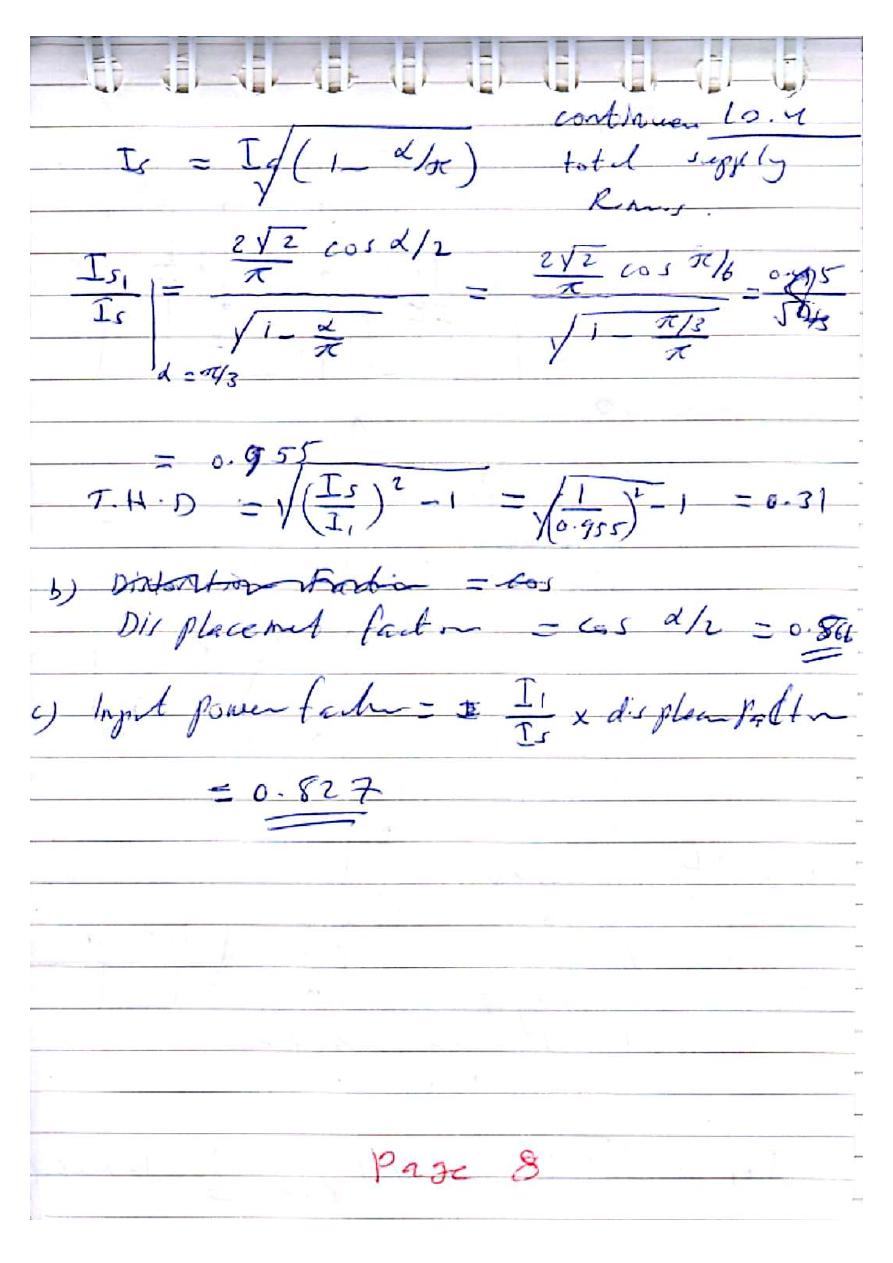 continuen 10.4
Is = Id √(1 - α/π) total supply
Rms.
Is1/Is | α = π/3 = (2√2/π cos α/2) / √(1 - α/π) = (2√2/π cos π/6) / √(1 - (π/3)/π) =
= 0.955
T.H.D = √((Is/I1)² - 1) = √((1/0.955)² - 1) = 0.31
b) Distortion Factor = cos
Displacemet factor = cos α/2 = 0.866
c) Input power factor = I1/Is × displacem factor
= 0.827
Page 8